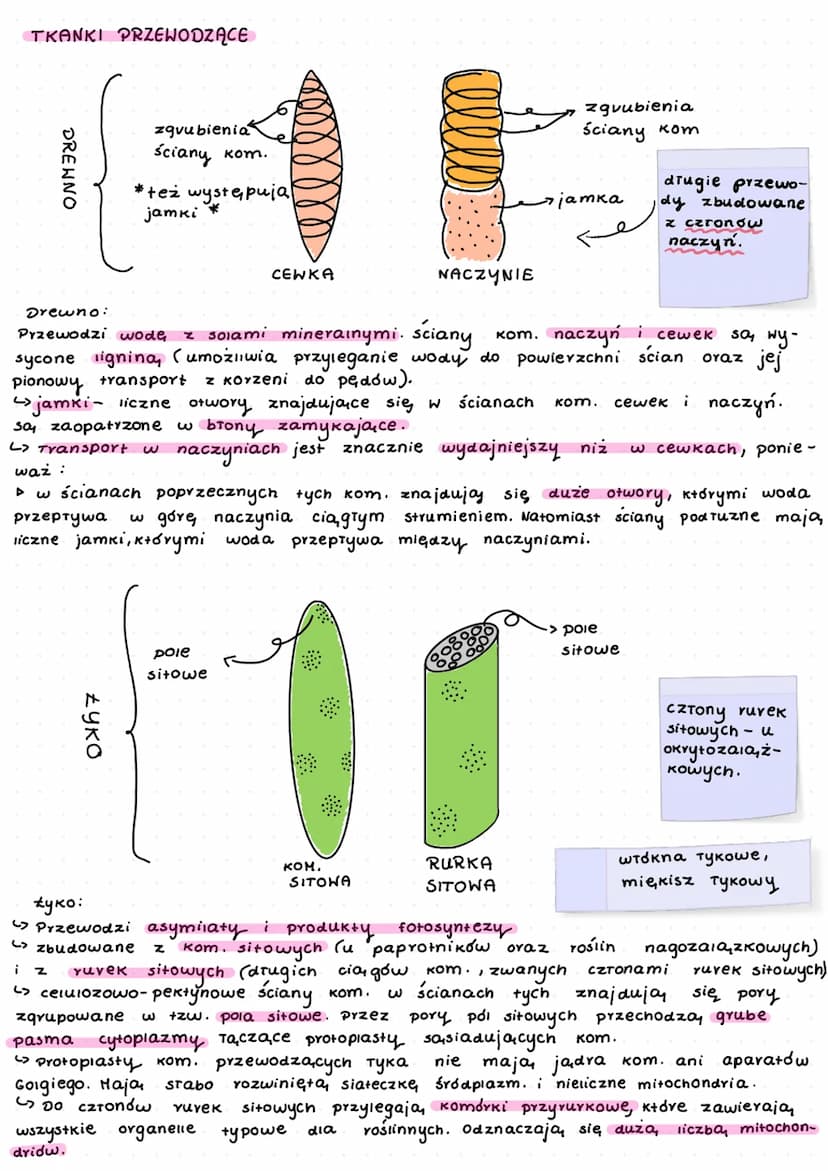 TKANKI PRZEWODZĄCE
DREWNO
zgrubienia
ściany kom.
*też występują
jamki *
CEWKA
zgrubienia
ściany kom
jamka
NACZYNIE
długie przewo-
dy zbudowane
z członów
naczyń.
Drewno:
Przewodzi wodę z solami mineralnymi. ściany kom. naczyń i cewek są wy-
sycone ligniną (umożliwia przyleganie wody do powierzchni ścian oraz jej
pionowy transport z korzeni do pędów).
↳ jamki- liczne otwory znajdujące się w ścianach kom. cewek i naczyń.
są zaopatrzone w błony zamykające.
↳ Transport w naczyniach jest znacznie wydajniejszy niż w cewkach, ponie-
waż:
▹ w ścianach poprzecznych tych kom. znajdują się duże otwory, którymi woda
przepływa w górę naczynia ciągłym strumieniem. Natomiast ściany podłużne mają
liczne jamki, którymi woda przepływa między naczyniami.
ŁYKO
pole
sitowe
KOM.
SITOWA
pole
sitowe
RURKA
SITOWA
człony rurek
sitowych - u
okrytozaląż-
kowych.
włókna łykowe,
miękisz łykowy
Łyko:
↳ Przewodzi asymilaty i produkty fotosyntezy
↳ zbudowane z kom. sitowych (u paprotników oraz roślin nagozalązkowych)
i z rurek sitowych (długich ciągów kom., zwanych członami rurek sitowych)
↳ celulozowo-pektynowe ściany kom. w ścianach tych znajdują się pory
zgrupowane w tzw. pola sitowe. Przez pory pól sitowych przechodzą grube
pasma cytoplazmy łączące protoplasty sąsiadujących kom.
↳ Protoplasty kom. przewodzących łyka nie mają jądra kom. ani aparatów
Golgiego. Mają słabo rozwiniętą siateczkę śródplazm. i nieliczne mitochondria.
↳ Do członów rurek sitowych przylegają komórki przyrurkowe, które zawierają
wszystkie organelle typowe dla roślinnych. Odznaczają się dużą liczbą mitochon-
driów.